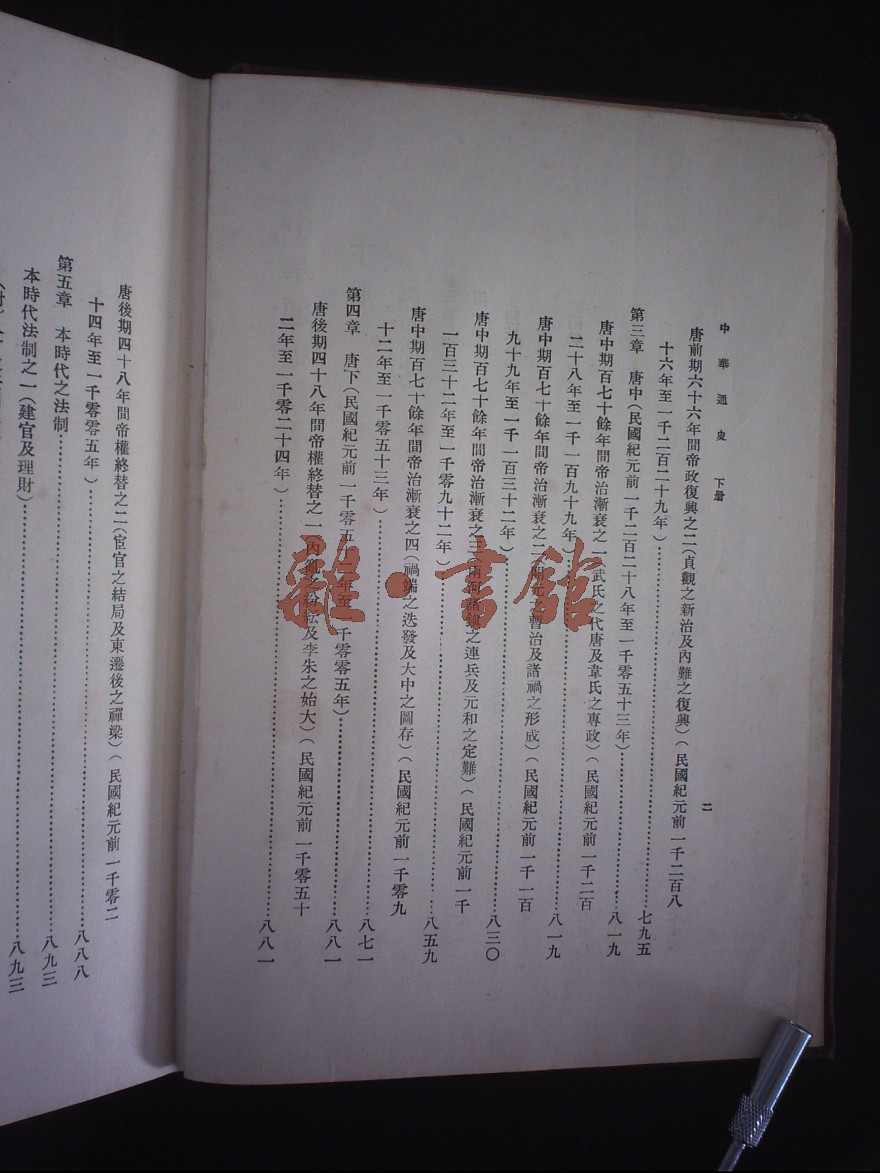 中華通史 下册 二
唐前期六十六年間帝政復興之二(貞觀之新治及內難之復興)(民國紀元前一千二百八
十六年至一千二百二十九年)……七九五
第三章 唐中(民國紀元前一千二百二十八年至一千零五十三年)……八一九
唐中期百七十餘年間帝治漸衰之一(武氏之代唐及韋氏之專政)(民國紀元前一千二百
二十八年至一千一百九十九年)……八一九
唐中期百七十餘年間帝治漸衰之二(開元之暫治及諸禍之形成)(民國紀元前一千一百
九十九年至一千一百三十二年)……八三〇
唐中期百七十餘年間帝治漸衰之三(兩河諸鎮之連兵及元和之定難)(民國紀元前一千
一百三十二年至一千零九十二年)……八五九
唐中期百七十餘年間帝治漸衰之四(禍端之迭發及大中之圖存)(民國紀元前一千零九
十二年至一千零五十三年)……八七一
第四章 唐下(民國紀元前一千零五十二年至一千零零五年)……八八一
唐後期四十八年間帝權終替之一(內亂之紛紜及李朱之始大)(民國紀元前一千零五十
二年至一千零二十四年)……八八一
唐後期四十八年間帝權終替之二(宦官之結局及東遷後之禪梁)(民國紀元前一千零二
十四年至一千零零五年)……八八八
第五章 本時代之法制……八九三
本時代法制之一(建官及理財)……八九三
雜·書館